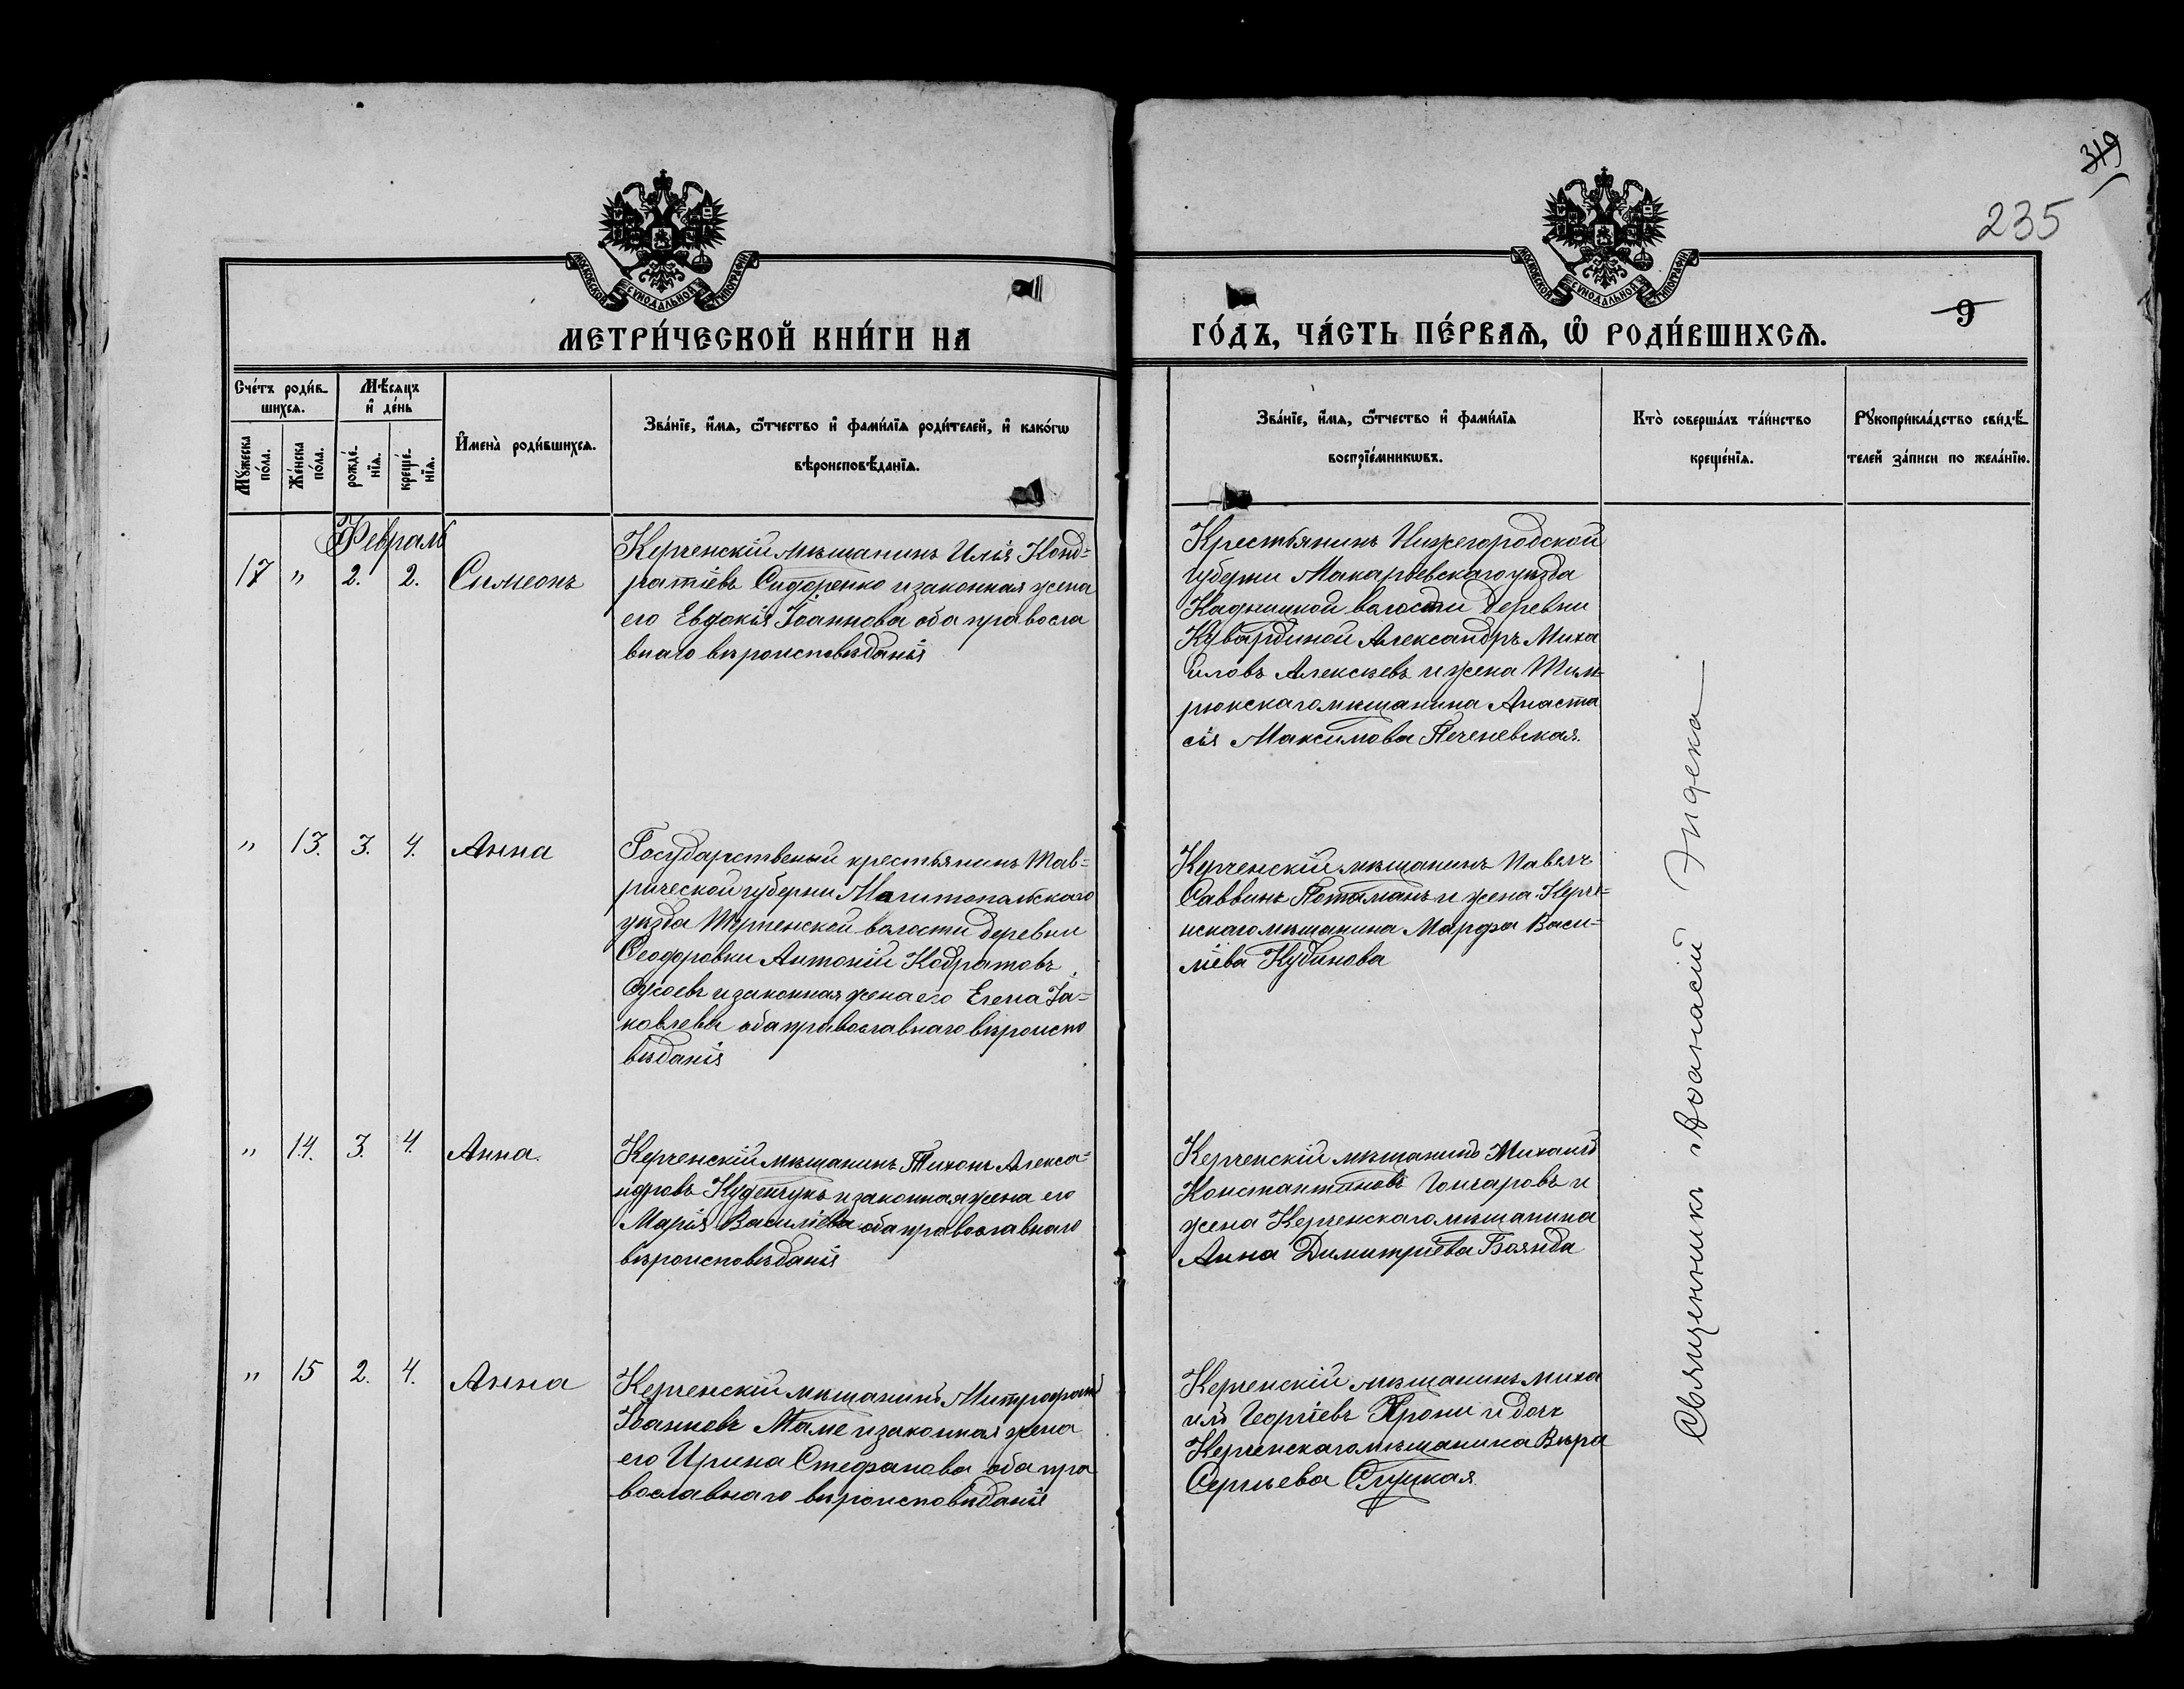 319
235
МОСКОВСКОЙ СѴНОДАЛЬНОЙ ТИПОГРАФІИ
МОСКОВСКОЙ СѴНОДАЛЬНОЙ ТИПОГРАФІИ
9
МЕТРИ́ЧЕСКОЙ КНИ́ГИ НА
ГО́ДЪ, ЧА́СТЬ ПЕ́РВАѦ, Ѡ РОДИ́ВШИХСѦ.
Сче́тъ роди́в-
шихсѧ.
Мꙋ́жеска по́ла.
Же́нска по́ла.
Мѣ́сѧцъ
и҆ де́нь
рожде́нїѧ.
креще́нїѧ.
И҆мена̀ роди́вшихсѧ.
Зва́нїе, и҆́мѧ, ѻ҆́тчество и҆ фами́лїѧ роди́телей, и҆ како́гѡ
вѣроисповѣ́данїѧ.
Зва́нїе, и҆́мѧ, ѻ҆́тчество и҆ фами́лїѧ
воспрїе́мникѡвъ.
Кто̀ соверша́лъ та́инство
креще́нїѧ.
Рꙋкоприкла́дство свидѣ́-
телей за́писи по жела́нїю.
Февраль
17 " 2. 2. Симеонъ
Керченскій мѣщанинъ Илія Конд=
ратіевъ Сидоренко и законная жена
его Евдокія Іоаннова оба правосла
внаго вѣроисповѣданія
Крестьянинъ Нижегородской
губерни Макарьевскаго уѣзда
волости деревни
Кувардиной Александръ Миха
иловъ Алексѣевъ и жена Тем=
рюкскаго мѣщанина Анаста
сія Максимова Печеневская.
" 13. 3. 4. Анна
Государственый крестьянинъ Тав=
рической губерни Мелитопольскаго
уѣзда Терпенской волости деревни
Феодоровки Антоній Кодратовъ
и законная жена его Елена Іа=
ковлева оба православнаго вѣроиспо
вѣданія
Керченскій мѣщанинъ Павелъ
Саввинъ Потаманъ и жена Керче=
нскаго мѣщанина Марфа Васи=
ліева Кубинова
" 14. 3. 4. Анна.
Керченскій мѣщанинъ Тихонъ Алекса=
ндровъ Куденчукъ и законная жена его
Марія Василіева оба православнаго
вѣроисповѣданія
Керченскій мѣщанинъ Михаилъ
Константиновъ Гончаровъ и
жена Керченскаго мѣщанина
Анна Димитріева Баянда
" 15 2. 4. Анна
Керченскій мѣщанинъ Митрофанъ
Іоанновъ и законная жена
его Ирина Стефанова оба пра
вославнаго вѣроисповѣданія
Керченскій мѣщанинъ Миха
илъ Георгіевъ и дочь
Керченскаго мѣщанина Вѣра
Сергѣева Слуцкая
Священникъ Аѳанасій Эндека